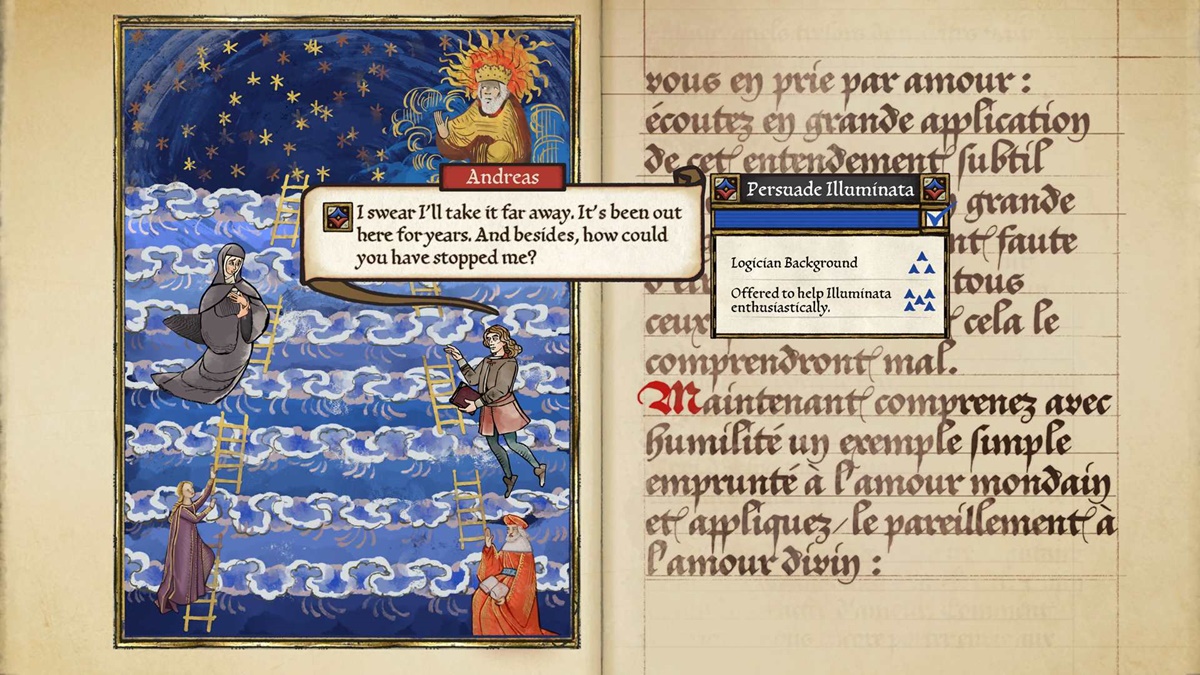 Andreas
I swear I'll take it far away. It's been out
here for years. And besides, how could
you have stopped me?
Persuade Illuminata
Logician Background
Offered to help Illuminata
enthusiastically.
vous en prie par amour :
écoutez en grande application
de cet entendement subtil
grande
faute
tous
ceux cela le
comprendront mal.
Maintenant comprenez avec
humilité un exemple simple
emprunté à l'amour mondain
et appliquez-le pareillement à
l'amour divin :